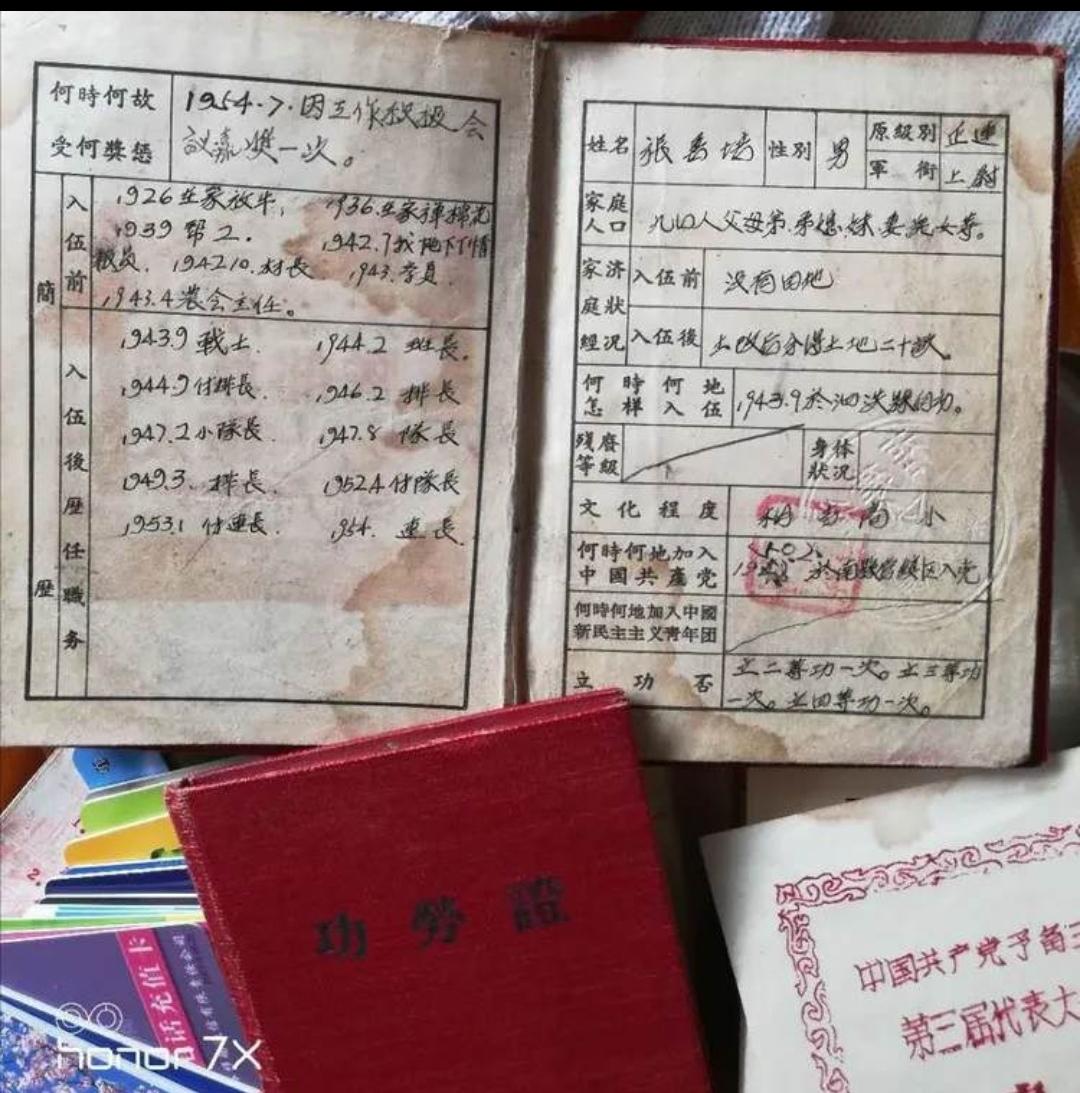 何時何故
受何獎惩
1954.7.因工作积极会
议嘉奖一次。
簡歷
入伍前
1926在家放牛,
1936.在家弹棉花
1939 帮工.
1942.7我地下情
报员.
1942.10.村長
1943.学員.
1943.4農会主任。
入伍後歷任職务
1943.9 戰士.
1944.2 班長.
1944.9付排長.
1946.2 排長
1947.2小隊長.
1947.8 隊長
1949.3. 排長.
1952.4付隊長
1953.1 付連長.
1954. 連長.
姓名
張
性别
男
原級别
正連
軍銜
上尉
家庭人口
九口人父母弟.弟媳.妹.妻.児女等。
家庭經济狀况
入伍前
没有田地
入伍後
土改后分得土地二十畝。
何時何地
怎样入伍
1943.9於泗洪縣
残廢
等級
身体
狀况
文化程度
初小
何時何地加入
中國共產党
於南 区入党
何時何地加入中國
新民主主义青年团
立功否
立二等功一次。立三等功
一次。立四等功一次。
功勞證
话充值卡
中国共产党
第三届代表大
honor 7X